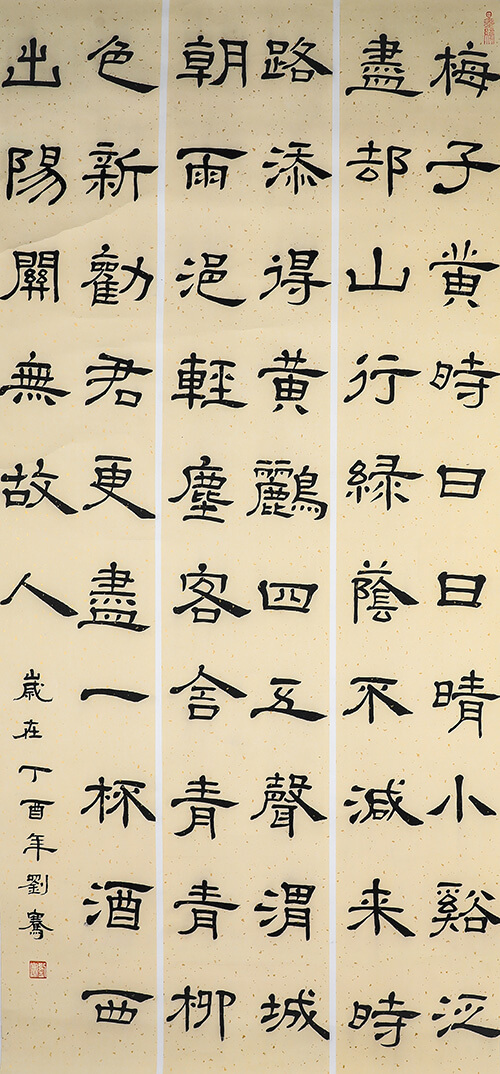 梅子黄時日日晴小谿泛
盡却山行緑蔭不減来時
路添得黄鸝四五聲渭城
朝雨浥輕塵客舎青青柳
色新勸君更盡一杯酒西
出陽關無故人
歲在丁酉年劉騫